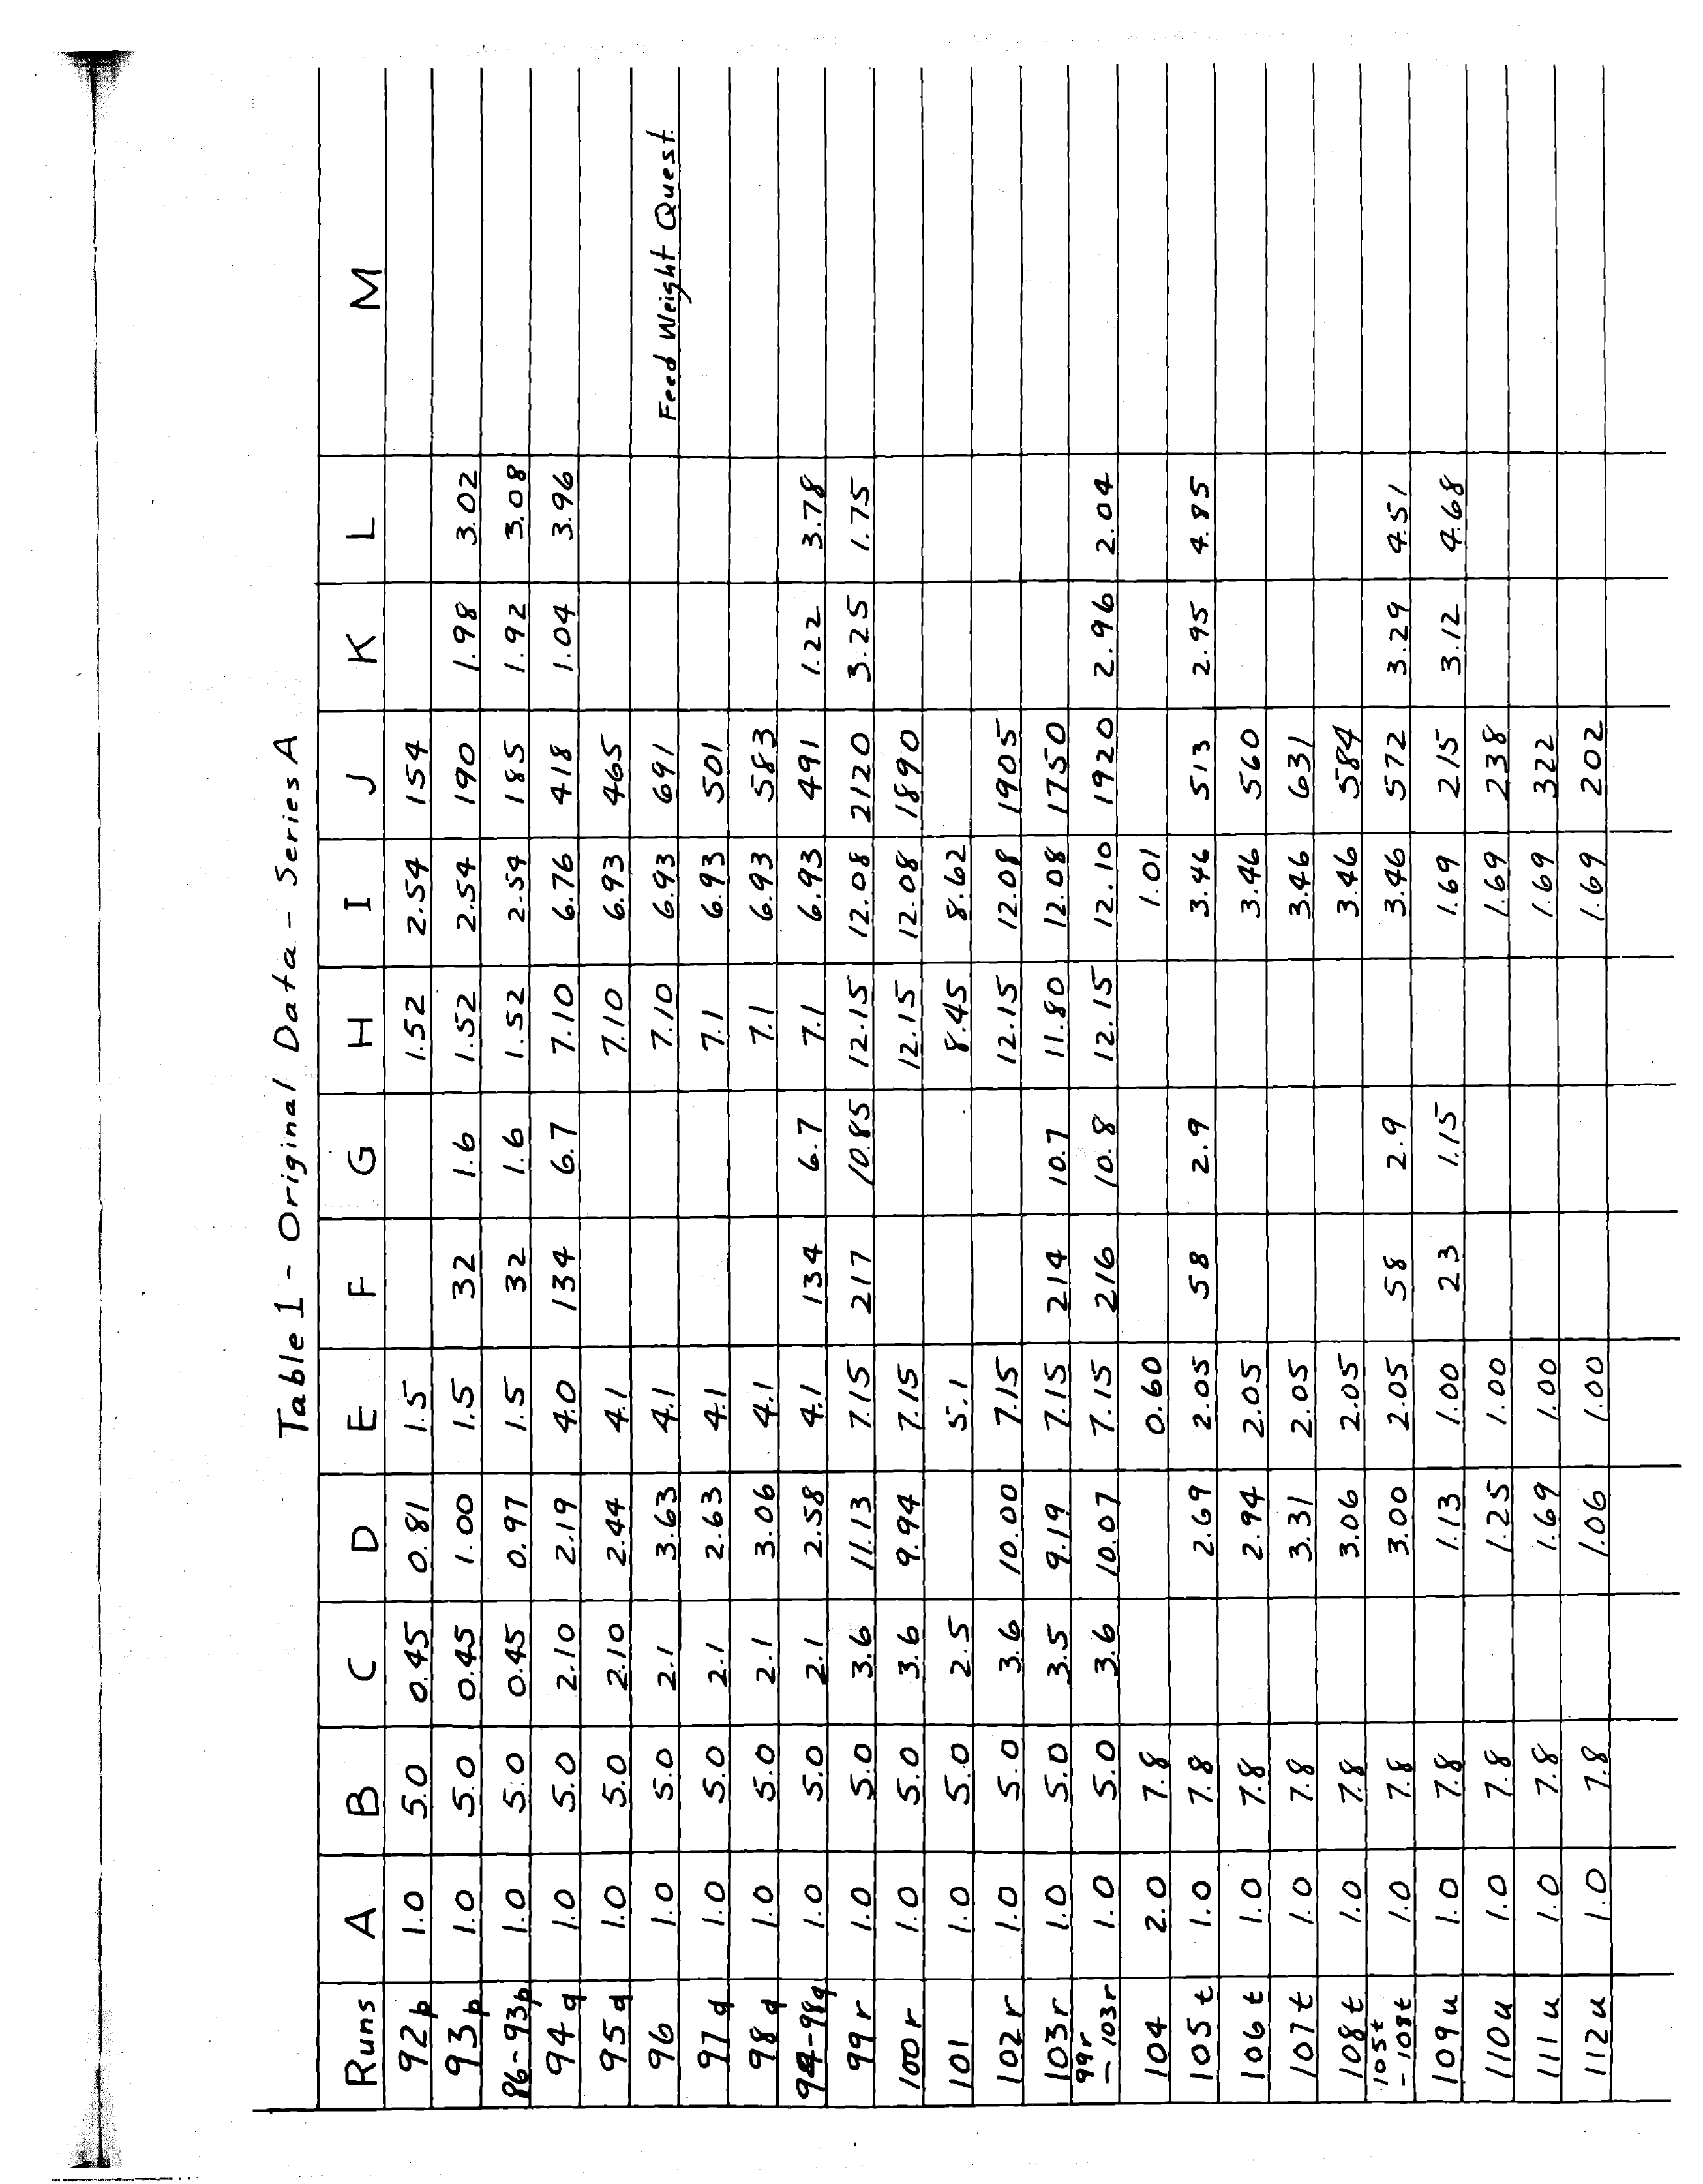 Table 1 - Original Data - Series A
Runs A B C D E F G H I J K L M
92p 1.0 5.0 0.45 0.81 1.5 1.52 2.54 154
93p 1.0 5.0 0.45 1.00 1.5 32 1.6 1.52 2.54 190 1.98 3.02
86-93p 1.0 5.0 0.45 0.97 1.5 32 1.6 1.52 2.54 185 1.92 3.08
94q 1.0 5.0 2.10 2.19 4.0 134 6.7 7.10 6.76 418 1.04 3.96
95q 1.0 5.0 2.10 2.44 4.1 7.10 6.93 465
96 1.0 5.0 2.1 3.63 4.1 7.10 6.93 691 Feed Weight Quest.
97q 1.0 5.0 2.1 2.63 4.1 7.1 6.93 501
98q 1.0 5.0 2.1 3.06 4.1 7.1 6.93 583
94-98q 1.0 5.0 2.1 2.58 4.1 134 6.7 7.1 6.93 491 1.22 3.78
99r 1.0 5.0 3.6 11.13 7.15 217 10.85 12.15 12.08 2120 3.25 1.75
100r 1.0 5.0 3.6 9.94 7.15 12.15 12.08 1890
101 1.0 5.0 2.5 5.1 8.45 8.62
102r 1.0 5.0 3.6 10.00 7.15 12.15 12.08 1905
103r 1.0 5.0 3.5 9.19 7.15 214 10.7 11.80 12.08 1750
99r
-103r 1.0 5.0 3.6 10.07 7.15 216 10.8 12.15 12.10 1920 2.96 2.04
104 2.0 7.8 0.60 1.01
105t 1.0 7.8 2.69 2.05 58 2.9 3.46 513 2.95 4.85
106t 1.0 7.8 2.94 2.05 3.46 560
107t 1.0 7.8 3.31 2.05 3.46 631
108t 1.0 7.8 3.06 2.05 3.46 584
105t
-108t 1.0 7.8 3.00 2.05 58 2.9 3.46 572 3.29 4.51
109u 1.0 7.8 1.13 1.00 23 1.15 1.69 215 3.12 4.68
110u 1.0 7.8 1.25 1.00 1.69 238
111u 1.0 7.8 1.69 1.00 1.69 322
112u 1.0 7.8 1.06 1.00 1.69 202